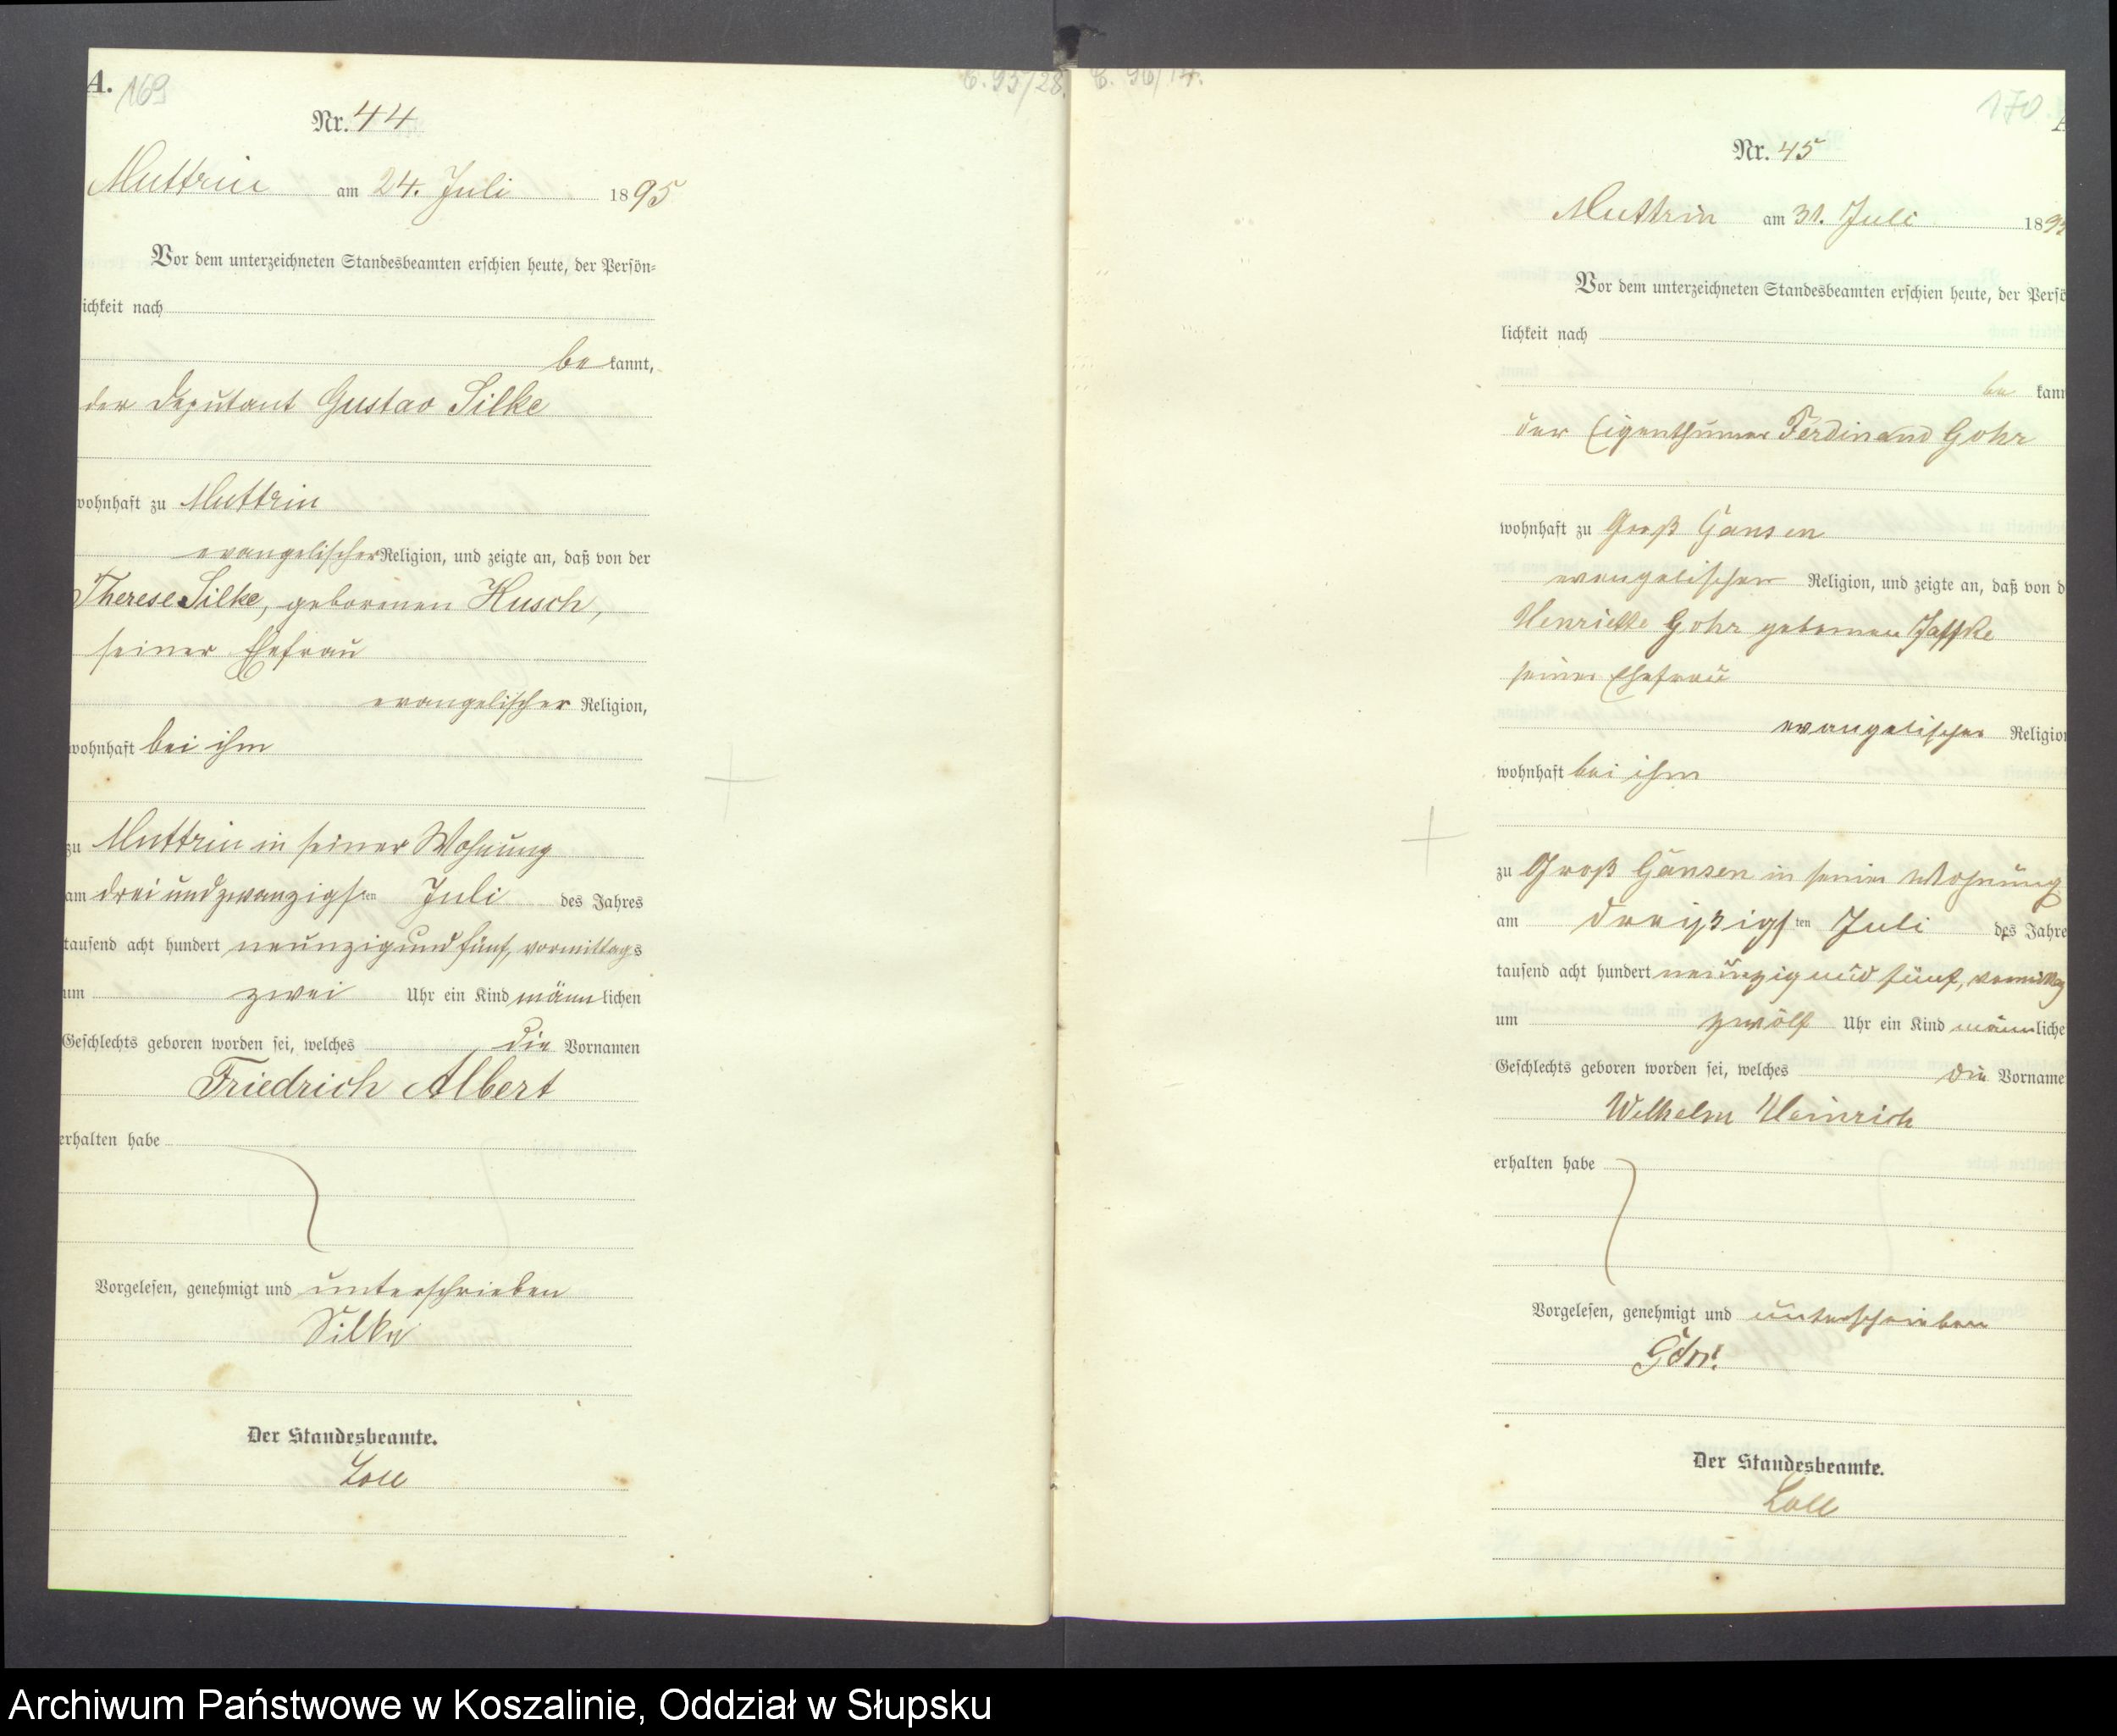 A. 169
C. 95/28.
Nr. 44
Muttrin am 24. Juli 1895
Vor dem unterzeichneten Standesbeamten erschien heute, der Persön-
ichkeit nach
be kannt,
der Deputant Gustav Silke
wohnhaft zu Muttrin
evangelischer Religion, und zeigte an, daß von der
Therese Silke, geborenen Kusch,
seiner Ehefrau
evangelischer Religion,
wohnhaft bei ihm
zu Muttrin in seiner Wohnung
am drei und zwanzigsten Juli des Jahres
tausend acht hundert neunzig und fünf, vormittags
um zwei Uhr ein Kind männlichen
Geschlechts geboren worden sei, welches die Vornamen
Friedrich Albert
erhalten habe
Vorgelesen, genehmigt und unterschrieben
Silke
Der Standesbeamte.
Loll
C. 96/14.
170
Nr. 45
Muttrin am 31. Juli 189
Vor dem unterzeichneten Standesbeamten erschien heute, der Persö
lichkeit nach
be kann
der Eigenthümer Ferdinand Gohr
wohnhaft zu Groß Gansen
evangelischer Religion, und zeigte an, daß von d
Henriette Gohr geborenen Jaffke
seiner Ehefrau
evangelischer Religion
wohnhaft bei ihm
zu Groß Gansen in seiner Wohnung
am dreißigsten Juli des Jahre
tausend acht hundert neunzig und fünf, vormittag
um zwölf Uhr ein Kind männliche
Geschlechts geboren worden sei, welches die Vorname
Wilhelm Heinrich
erhalten habe
Vorgelesen, genehmigt und unterschrieben
Der Standesbeamte.
Loll
Archiwum Państwowe w Koszalinie, Oddział w Słupsku